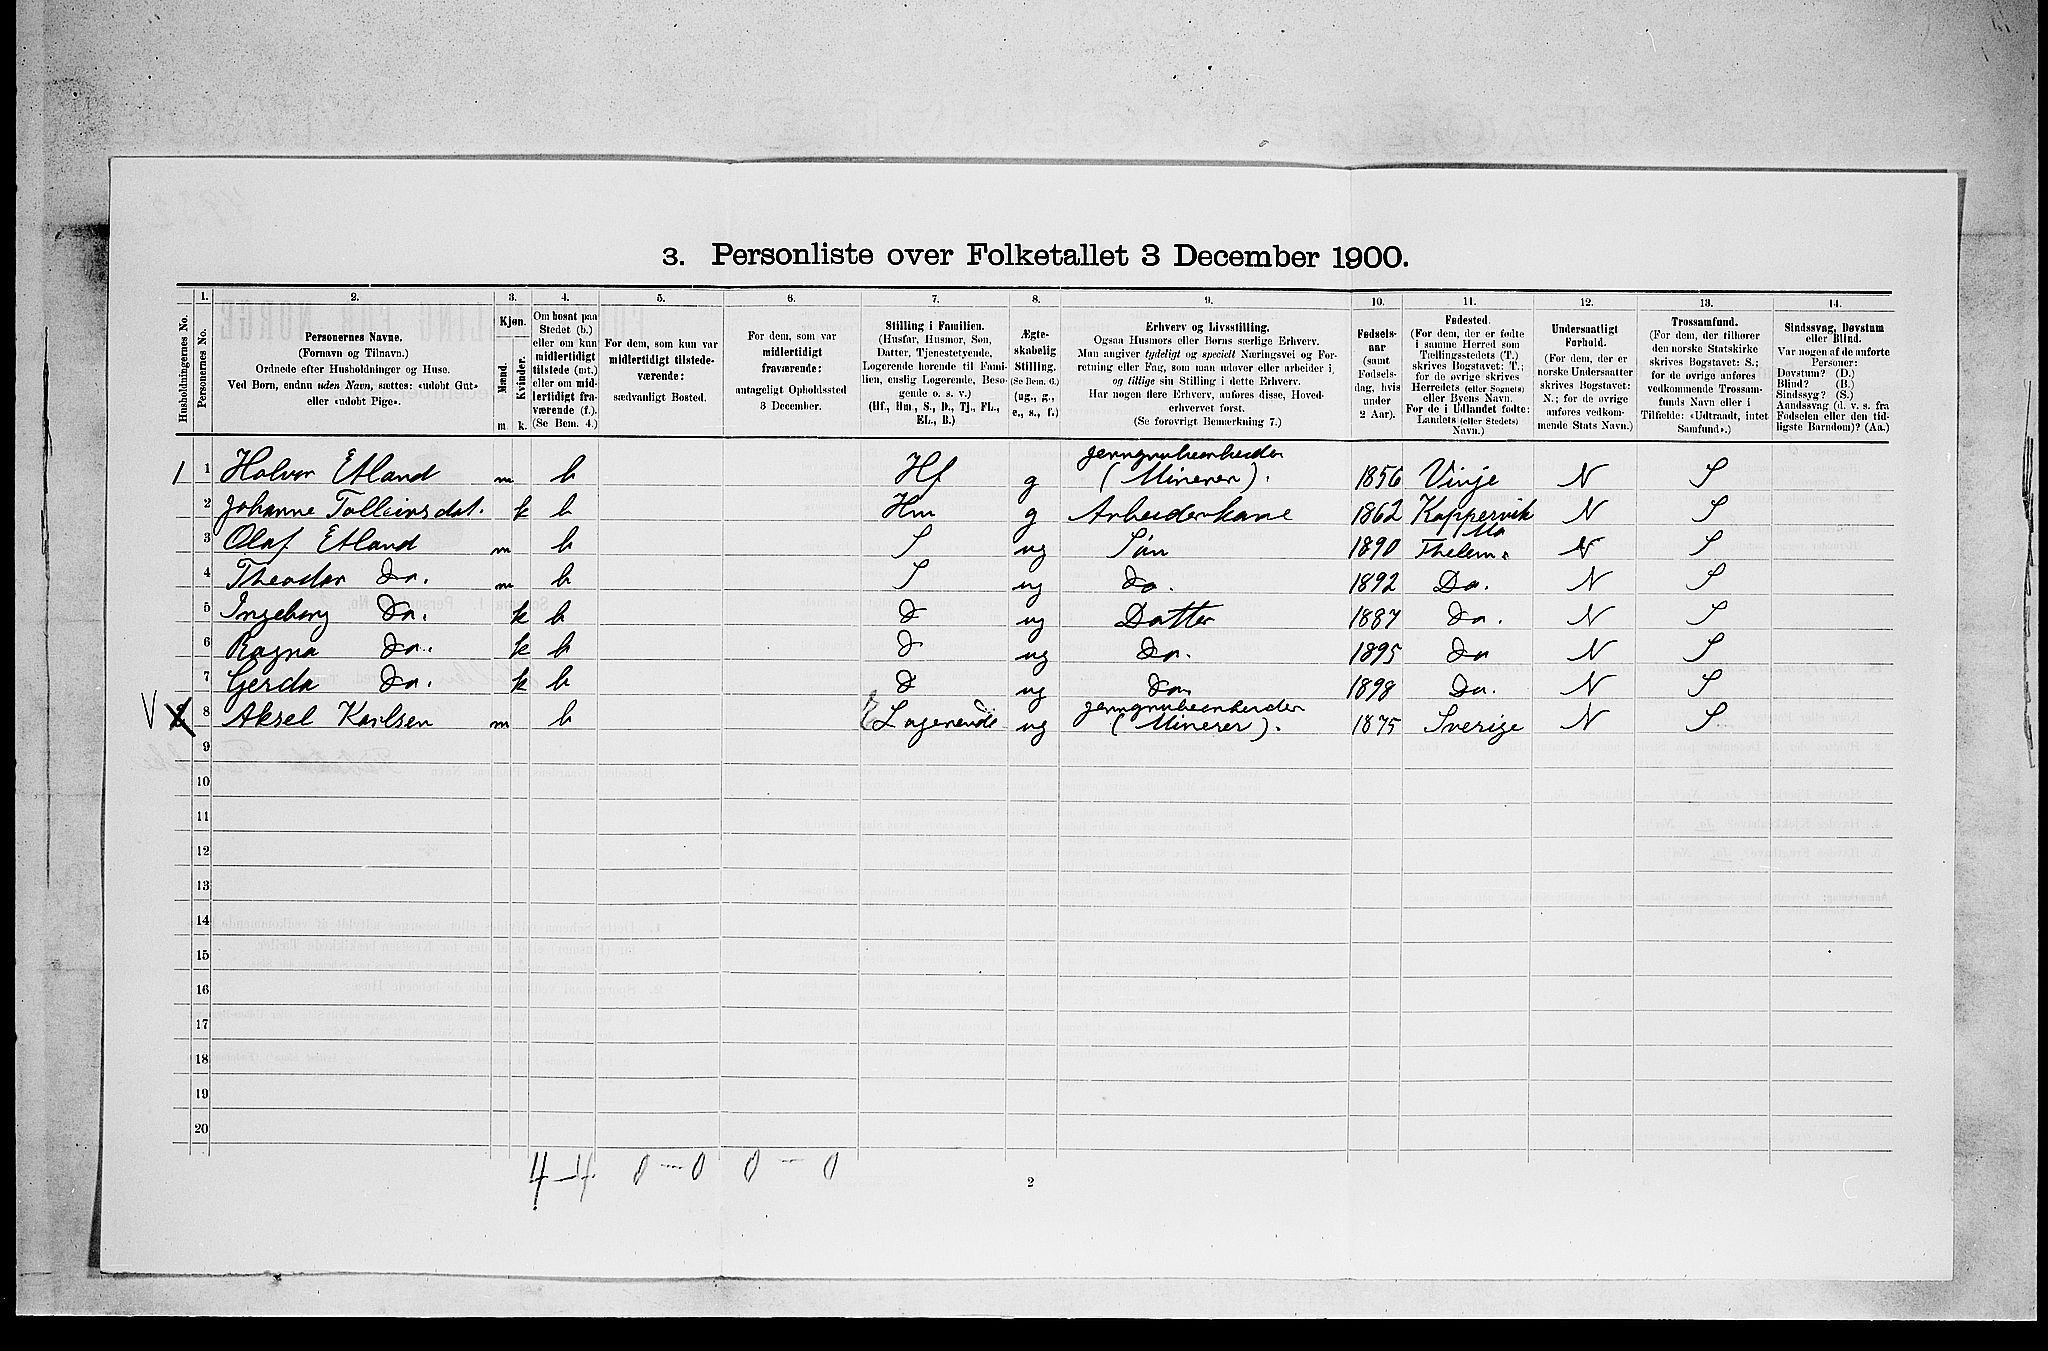 3. Personliste over Folketallet 3 December 1900.
1. 2. 3. 4. 5. 6. 7. 8. 9. 10. 11. 12. 13. 14.
Husholdningernes No.
Personernes No.
Personernes Navne.
(Fornavn og Tilnavn.)
Ordnede efter Husholdninger og Huse.
Ved Børn, endnu uden Navn, sættes: «udøbt Gut»
eller «udøbt Pige».
Kjøn.
Mænd. Kvinder.
m k.
Om bosat paa
Stedet (b.)
eller om kun
midlertidigt
tilstede (mt.)
eller om mid-
lertidigt fra-
værende (f.).
(Se Bem. 4.)
For dem, som kun var
midlertidigt tilstede-
værende:
sædvanligt Bosted.
For dem, som var
midlertidigt
fraværende:
antageligt Opholdssted
3 December.
Stilling i Familien.
(Husfar, Husmor, Søn,
Datter, Tjenestetyende,
Logerende hørende til Fami-
lien, enslig Logerende, Besø-
gende o. s. v.)
(Hf., Hm., S., D., Tj., FL.,
EL., B.)
Ægte-
skabelig
Stilling.
(Se Bem. 6.)
(ug., g.,
e., s., f.)
Erhverv og Livsstilling.
Ogsaa Husmors eller Børns særlige Erhverv.
Man angiver tydeligt og specielt Næringsvei og For-
retning eller Fag, som man udøver eller arbeider i,
og tillige sin Stilling i dette Erhverv.
Har nogen flere Erhverv, anføres disse, Hoved-
erhvervet først.
(Se forøvrigt Bemærkning 7.)
Fødsels-
aar
(samt
Fødsels-
dag, hvis
under
2 Aar).
Fødested.
(For dem, der er fødte
i samme Herred som
Tællingsstedets (T.)
skrives Bogstavet: T.;
for de øvrige skrives
Herredets (eller Sognets)
eller Byens Navn.
For de i Udlandet fødte:
Landets (eller Stedets)
Navn.)
Undersaatligt
Forhold.
(For dem, der er
norske Undersaatter
skrives Bogstavet:
N.; for de øvrige
anføres vedkom-
mende Stats Navn.)
Trossamfund.
(For dem, der tilhører
den norske Statskirke
skrives Bogstavet: S.;
for de øvrige anføres
vedkommende Trossam-
funds Navn eller i
Tilfælde: «Udtraadt, intet
Samfund».)
Sindssvag, Døvstum
eller Blind.
Var nogen af de anførte
Personer:
Døvstum? (D.)
Blind? (B.)
Sindssyg? (S.)
Aandssvag (d. v. s. fra
Fødselen eller den tid-
ligste Barndom)? (Aa.)
1 1 Halvor Etland m b Hf g jerngrubearbeider (Minerer). 1856 Vinje N S
2 Johanne Tolleivsdat. k b Hm g Arbeiderkone 1862 Koppervik N S
3 Olaf Etland m b S ug Søn 1890 Thelem. N S
4 Theodor Do. m b S ug do. 1892 Do. N S
5 Ingeborg Do. k b d ug Datter 1887 do. N S
6 Ragna Do. k b d ug do. 1895 do N S
7 Gerda Do. k b d ug do. 1898 Do. N S
V 8 Aksel Karlsen m b E Logerende ug jerngrubearbeider (Minerer). 1875 Sverige N S
9
10
11
12
13
14
15
16
17
18
19
20
4–4. 0–0 0–0
2